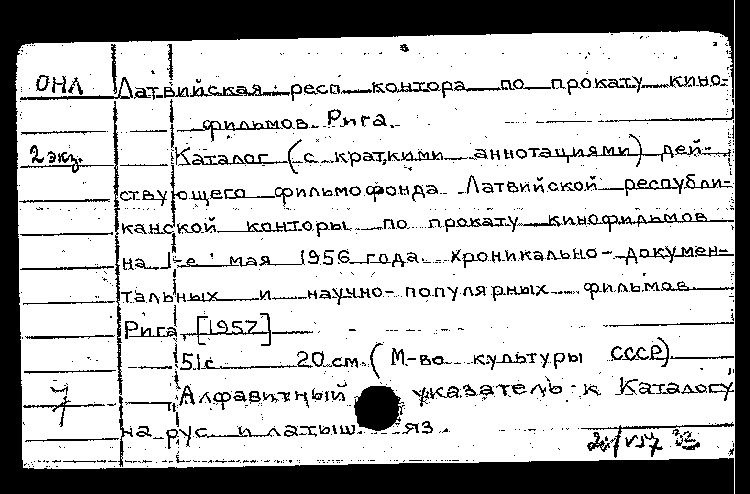 ОНЛ Латвийская респ контора по прокату кино-
фильмов. Рига.
2 экз. Каталог (с краткими аннотациями) дей-
ствующего фильмофонда Латвийской республи-
канской конторы по прокату кинофильмов
на 1-е мая 1956 года. Хроникально-докумен-
тальных и научно-популярных фильмов.
Рига, [1957]
51с 20 см. (М-во культуры СССР).
7 "Алфавитный указатель к Каталогу"
на рус. и латыш. яз.